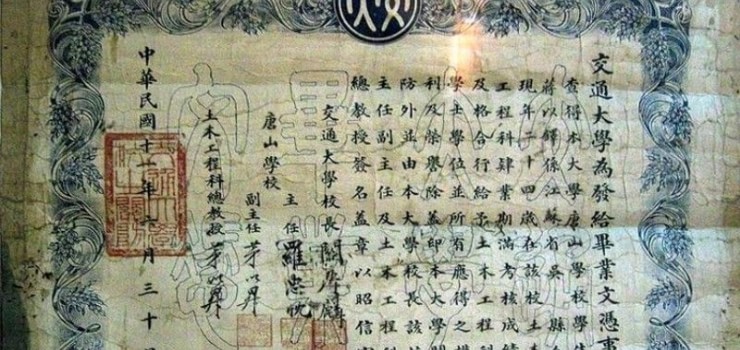 交通大學為發給畢業文憑事
查得本大學唐山學校學生
蔣以鐸係江蘇省吳縣
現年二十四歲在該校土木
工程科肄業期滿考核成績
及格合行給予土木工程科
學士學位並所有應得之權
利及榮譽除蓋印本大學關
防外並由本大學校長該校
主任副主任及土木工程科
總教授簽名蓋章以昭信守
交通大學校長 關賡麟
唐山學校
主任 羅忠忱
副主任 茅以昇
土木工程科總教授 茅以昇
中華民國十一年六月三十